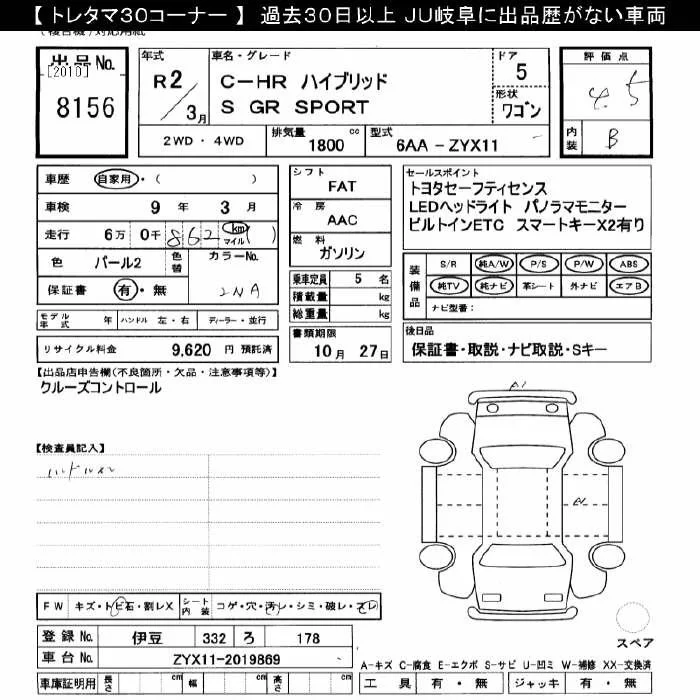 【 トレタマ30コーナー 】 過去30日以上 JU岐阜に出品歴がない車両
出品No.
[2010]
8156
年式
R2/3月
車名・グレード
C-HR ハイブリッド
S GR SPORT
ドア
5
形状
ワゴン
評価点
4.5
内装
B
2WD・4WD
排気量 1800 cc
型式 6AA-ZYX11
車歴 自家用・( )
車検 9年 3月
走行 6万 0千 862 km マイル ( )
色 パール2 色替 カラーNo.
保証書 有・無 2NA
モデル年式 年 ハンドル 左・右 ディーラー・並行
リサイクル料金 9,620 円 預託済
シフト
FAT
冷房
AAC
燃料
ガソリン
乗車定員 5 名
積載量 kg
総重量 kg
書類期限
10月 27日
セールスポイント
トヨタセーフティセンス
LEDヘッドライト パノラマモニター
ビルトインETC スマートキーX2有り
装備品
S/R 純A/W P/S P/W ABS
純TV 純ナビ 革シート 外ナビ エアB
ナビ型番:
後日品
保証書・取説・ナビ取説・Sキー
【出品店申告欄(不良箇所・欠品・注意事項等)】
クルーズコントロール
【検査員記入】
A1
FW キズ・トビ石・割レX シート内装 コゲ・穴・汚レ・シミ・破レ・スレ
登録No. 伊豆 332 ろ 178
車台No. ZYX11-2019869
車庫証明用 長さ cm 幅 cm 高さ cm
スペア
A-キズ C-腐食 E-エクボ S-サビ U-凹ミ W-補修 XX-交換済
工具 有・無 ジャッキ 有・無